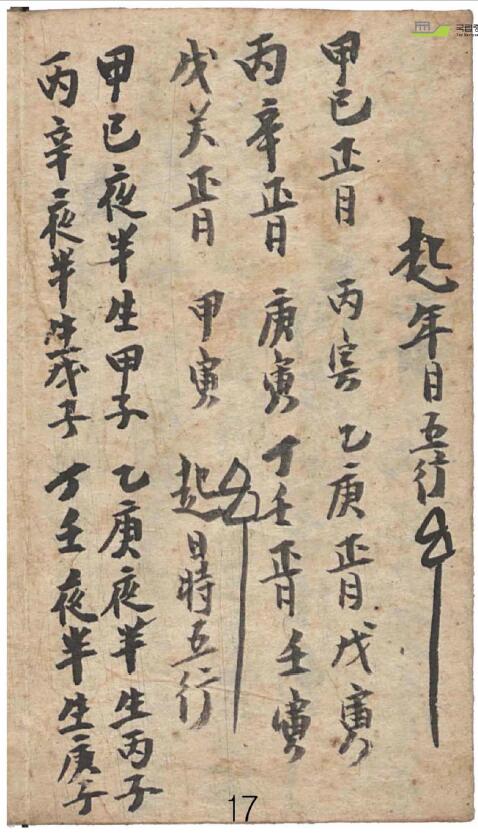 起年月五行
甲己正月 丙寅 乙庚正月 戊寅
丙辛正月 庚寅 丁壬正月 壬寅
戊癸正月 甲寅 起日時五行
甲己夜半生甲子 乙庚夜半生丙子
丙辛夜半生戊子 丁壬夜半生庚子
17